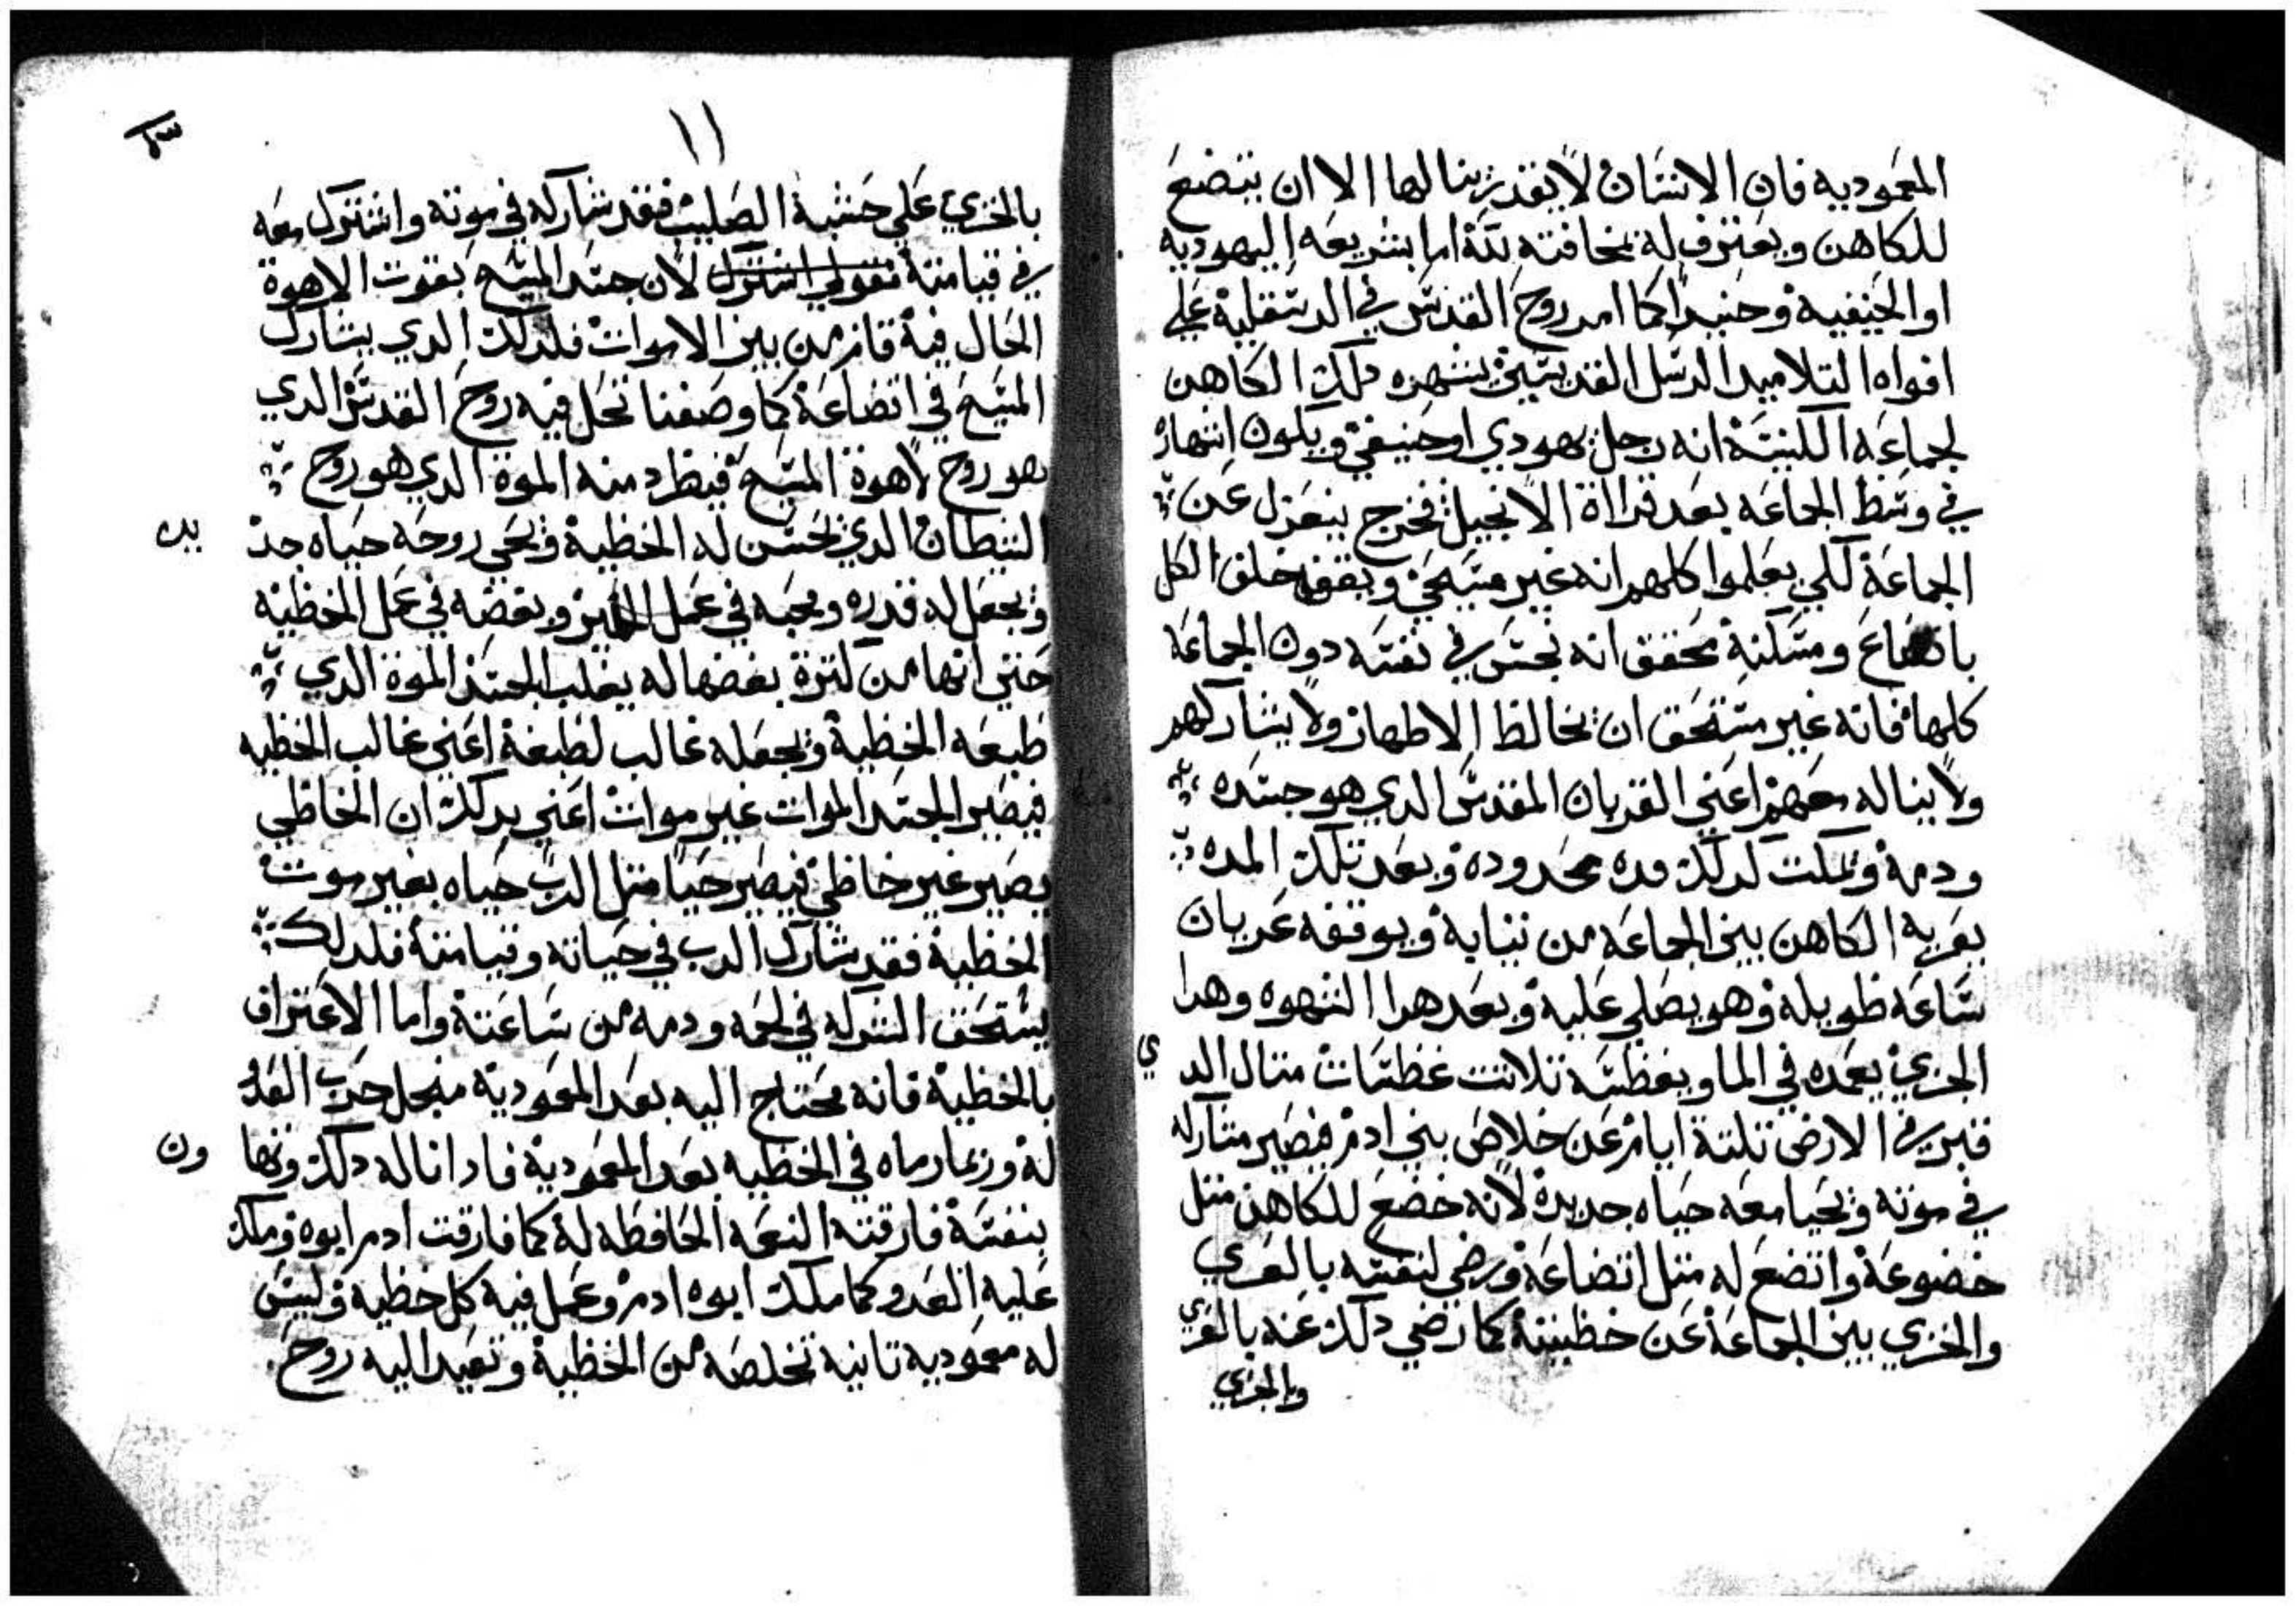 المعموديه فان الانسان لا يقدر ينالها الا ان يتضع
للكاهن ويعترف له بمخافته لله اما بشريعه اليهوديه
او الحنيفيه وحنيدا كما امر روح القدس في الدسقليه علي
افواه التلاميد الرسل القديسين ينهره دلك الكاهن
لجماعه الكنيسة انه رجل يهودي او حنيفي ويكون انتهاره
في وسط الجماعه بعد قراءة الانجيل فخرج ينعزل عن
الجماعة لكي يعلموا كلهم انه غير مسيحي ويقف خلف الكل
باتضاع ومسكنة محقق انه نجس في نفسه دون الجماعة
كلها فانه غير مستحق ان يخالط الاطهار ولا يشاركهم
ولا يناله معهم اعني القربان المقدس الدي هو جسده
ودمه ويمكت كدلك مده محدوده وبعد تلك المده
يعريه الكاهن بين الجماعه من ثيابه ويوقفه عريان
ساعه طويله وهو يصلي عليه وبعد هدا الشهوه وهدا
الخزي يعمده في الما ويغطسه تلاتت غطسات متال الدي
قبر في الارض تلتة ايام عن خلاص بني ادم فيصير مشاركه
في موته ويحيا معه حياه جديدة لانه خضع للكاهن متل
خضوعة واتضع له متل اتضاعة ورضي لنفسه بالعري
والخزي بين الجماعة عن خطيته كما رضي دلك عنه بالعري
وبالخزي
١١
بالخزي علي خشبة الصليب فقد شاركه في موته واشترك معه
في قيامته بقولي اشترك لان جسد المسيح بقوت الاهوة
الحال فيه قام من بين الاموات فلدلك الدي يشارك
المسيح في اتضاعة كما وصفنا تحل فيه روح القدس الدي
هو روح لاهوة المسيح فيطرد منه الموة الدي هو روح
الشيطان الدي يحسن له الخطية ويحي روحه حياه جديده
ويجعل له قدره ومحبه في عمل البر وبغضه في عمل الخطيه
حتي انها من كترة بغضها له يغلب الجسد الموة الدي
طبعه الخطية ويجعله غالب لطبعة اعني غالب الخطيه
فيصير الجسد الموات غير موات اعني بدلك ان الخاطي
يصير غير خاطي فيصير حيا متل الرب حياه بغير موت
الخطية فقد شارك الرب في حياته وقيامته فلدلك
يستحق الشركه في لحمه ودمه من ساعته واما الاعتراف
بالخطية فانه محتاج اليه بعد المعمودية منجل حرب العدو
له وربما رماه في الخطيه بعد المعمودية فادا ناله دلك وتهاون
بنفسة فارقته النعمه الحافظه له كما فارقت ادم ابوه وملك
عليه العدو كما ملك ابوه ادم وعمل فيه كل خطية وليس
له معموديه تانيه تخلصه من الخطية وتعيد اليه روح